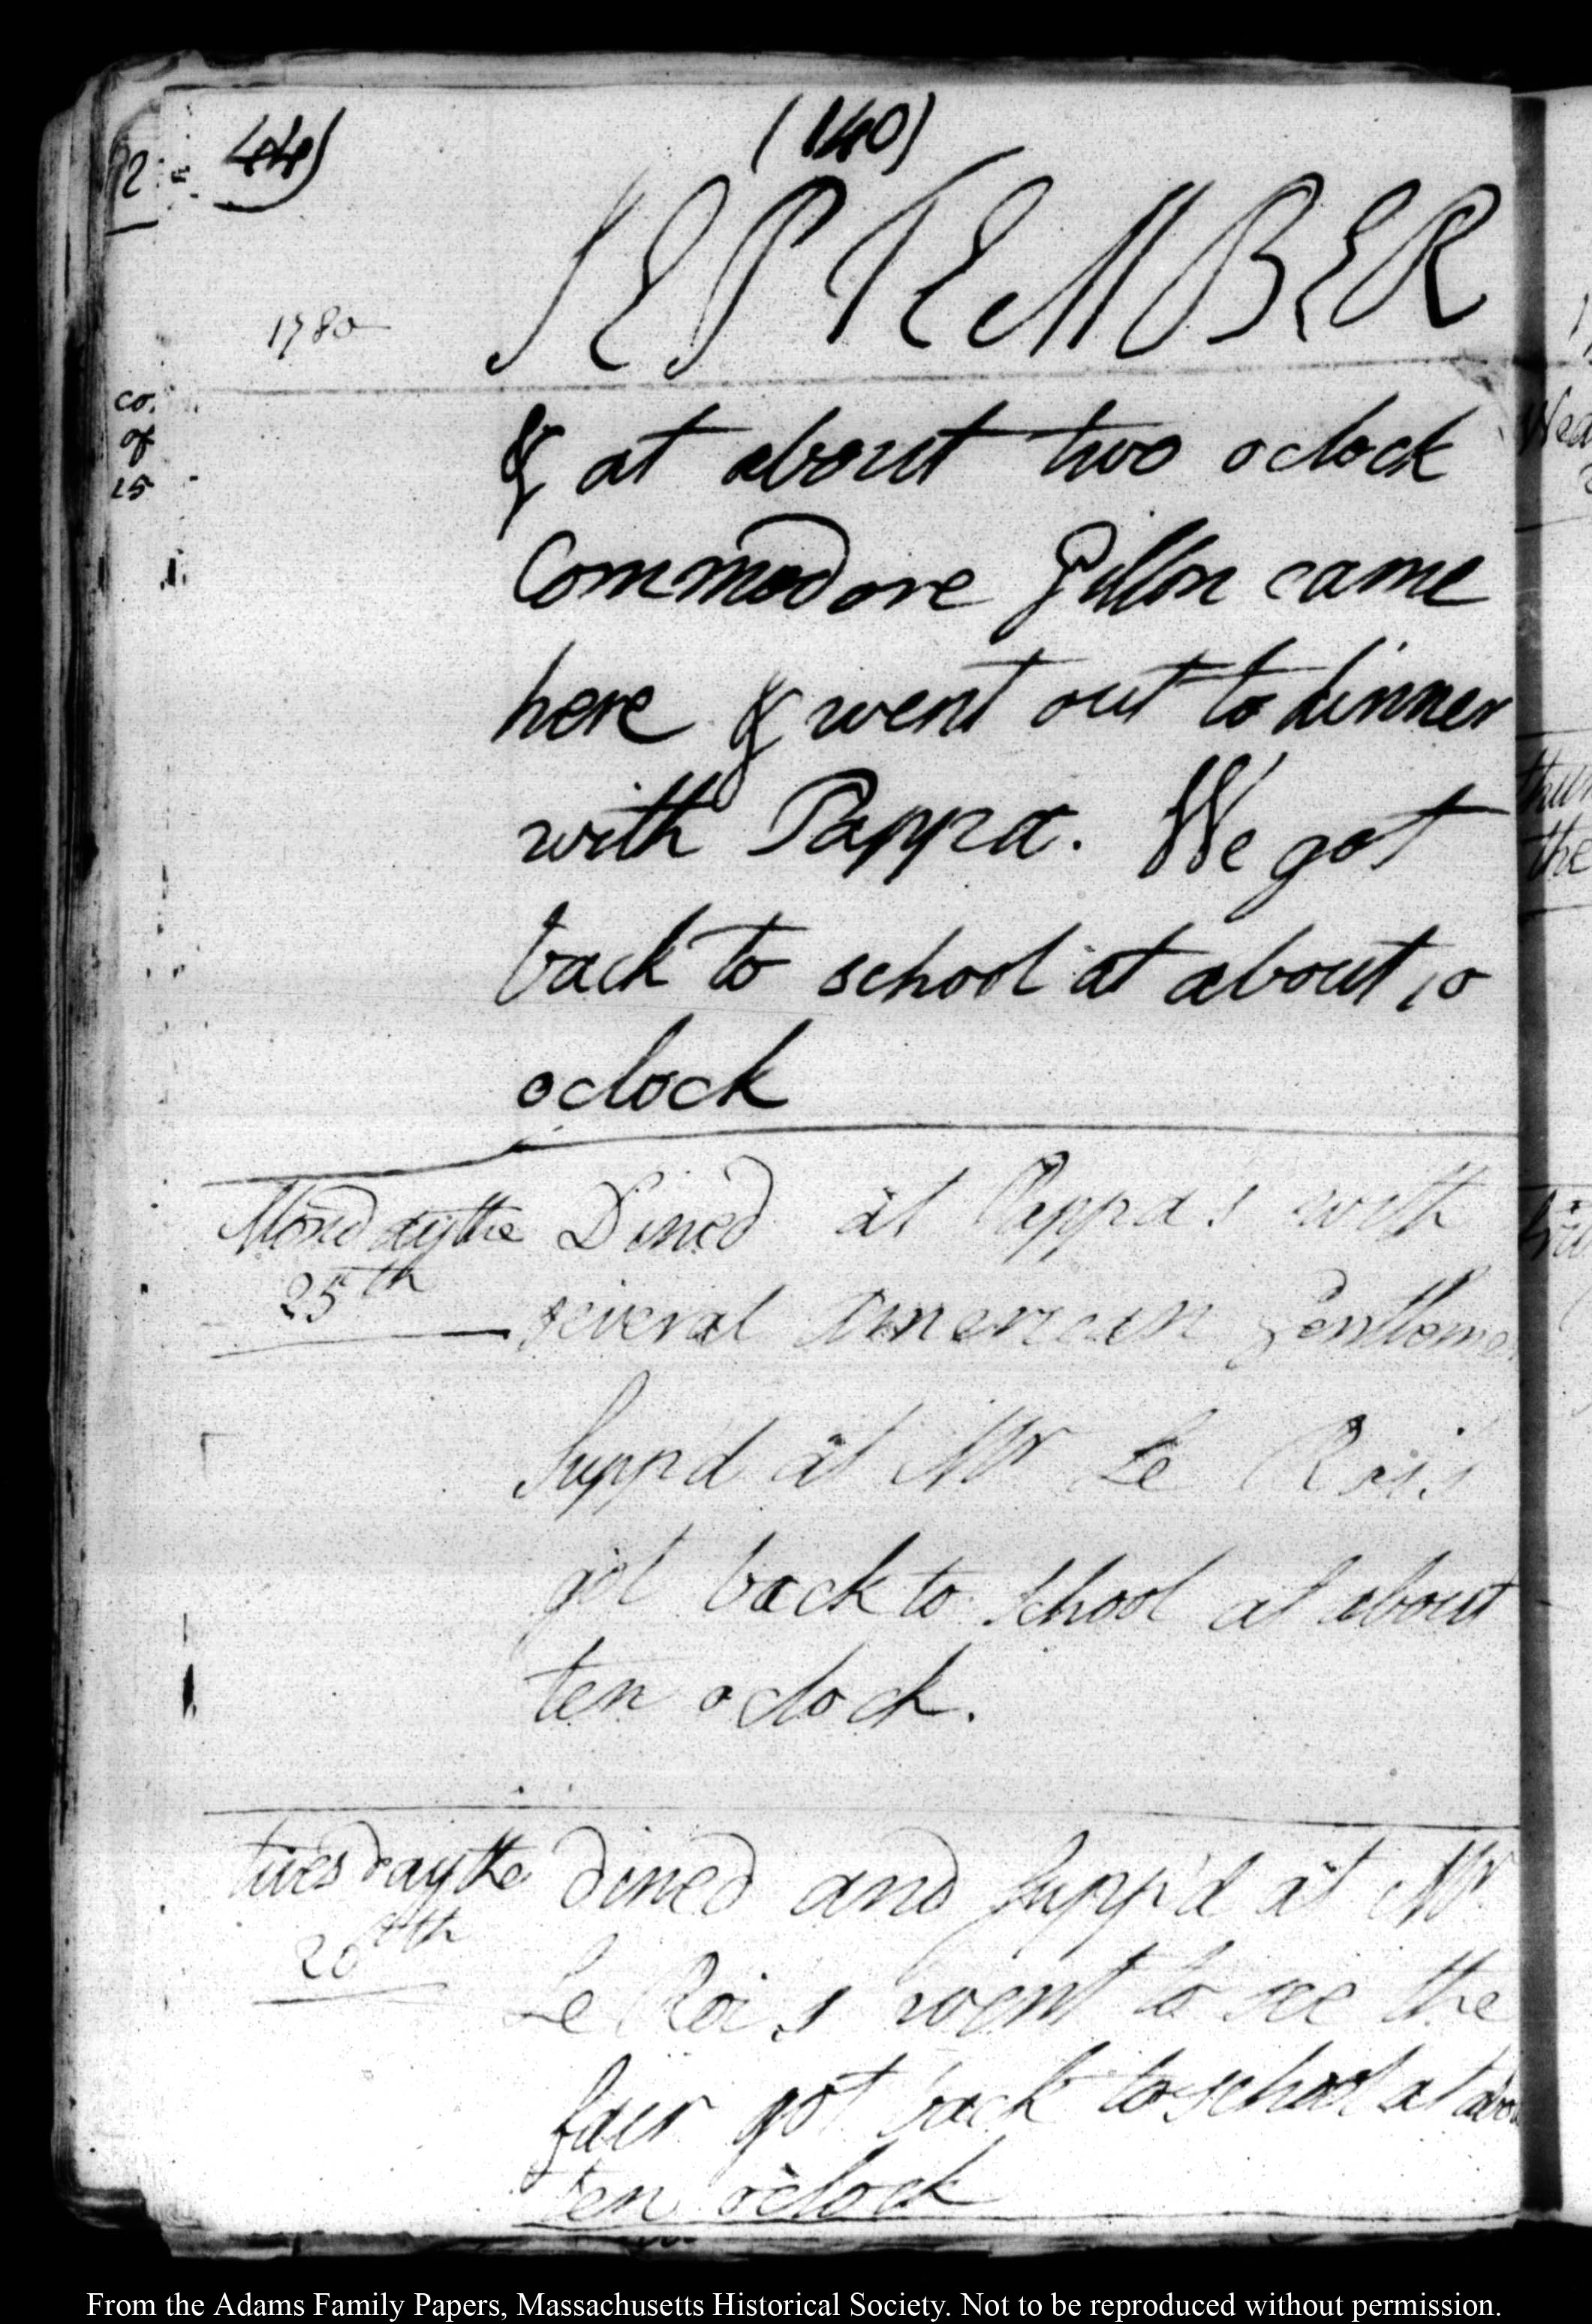 44)
(140)
SEPTEMBER
1780
co.
of
25
& at about two oclock
Commodore Gillon came
here & went out to dinner
with Pappa. We got
back to school at about 10
oclock
Monday the
25th
Dined at Pappa's with
several american Gentleme
Supp'd at Mr Le Roi's
got back to school at about
ten oclock.
tuesday the
26th
dined and supp'd at Mr
Le Roi's went to see the
fair got back to school at abou
ten oclock
From the Adams Family Papers, Massachusetts Historical Society. Not to be reproduced without permission.